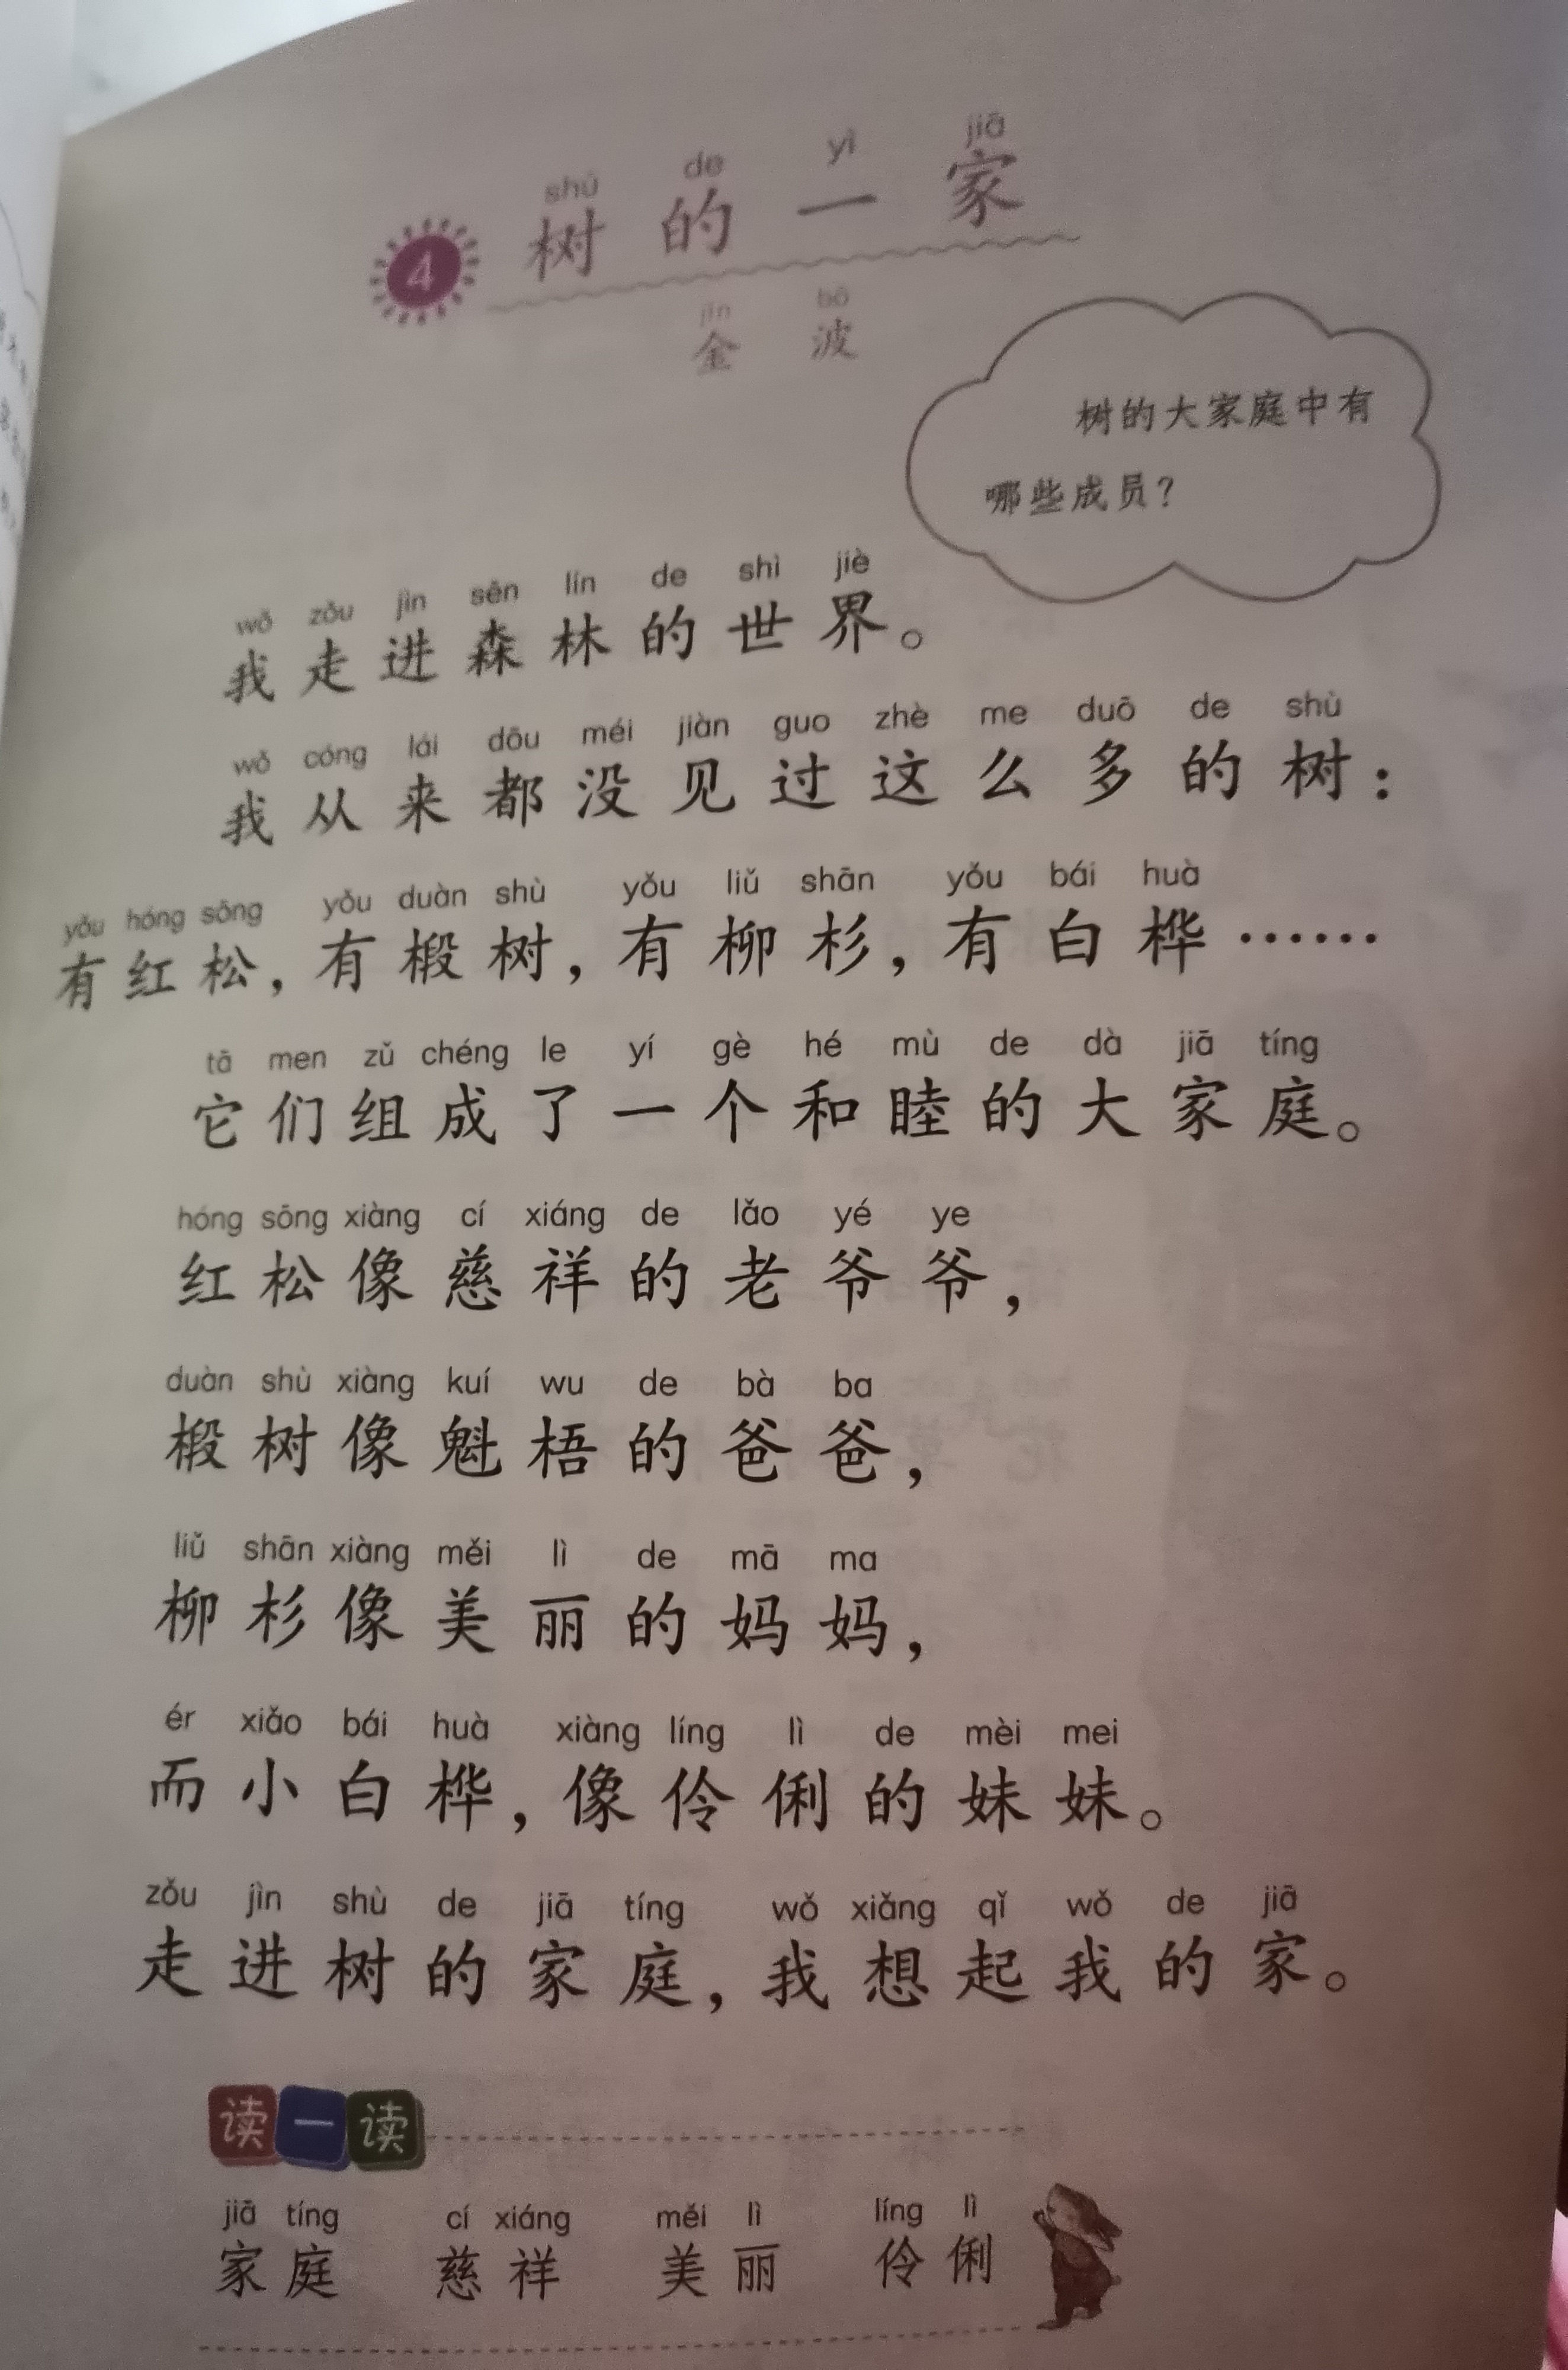 shù de yì jiā
4 树的一家
jīn bō
金波
树的大家庭中有
哪些成员?
wǒ zǒu jìn sēn lín de shì jiè
我走进森林的世界。
wǒ cóng lái dōu méi jiàn guo zhè me duō de shù
我从来都没见过这么多的树:
yǒu hóng sōng yǒu duàn shù yǒu liǔ shān yǒu bái huà
有红松,有椴树,有柳杉,有白桦……
tā men zǔ chéng le yí gè hé mù de dà jiā tíng
它们组成了一个和睦的大家庭。
hóng sōng xiàng cí xiáng de lǎo yé ye
红松像慈祥的老爷爷,
duàn shù xiàng kuí wu de bà ba
椴树像魁梧的爸爸,
liǔ shān xiàng měi lì de mā ma
柳杉像美丽的妈妈,
ér xiǎo bái huà xiàng líng lì de mèi mei
而小白桦,像伶俐的妹妹。
zǒu jìn shù de jiā tíng wǒ xiǎng qǐ wǒ de jiā
走进树的家庭,我想起我的家。
读一读
jiā tíng cí xiáng měi lì líng lì
家庭 慈祥 美丽 伶俐